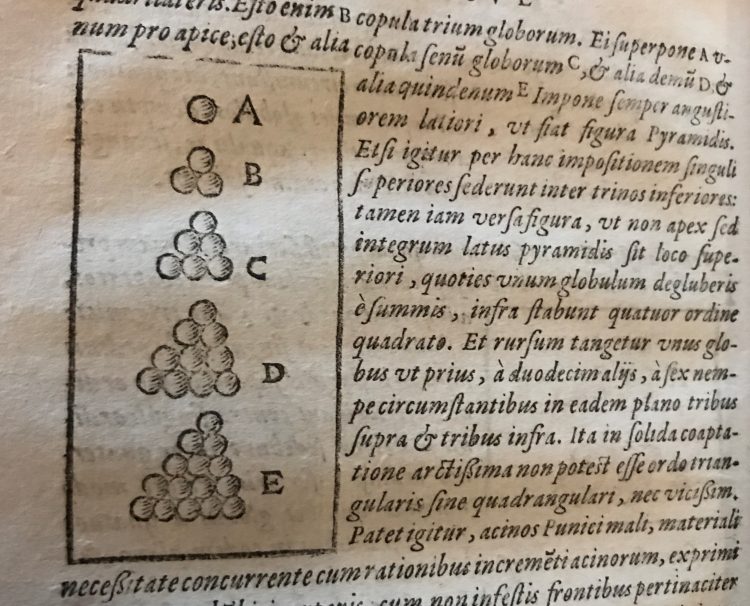 quadrilateris. Esto enim B copula trium globorum. Ei superpone A v-
num pro apice; esto & alia copula senũ globorum C, & alia denũ D, &
alia quindenum E Impone semper angusti-
orem latiori, vt fiat figura Pyramidis.
Etsi igitur per hanc impositionem singuli
superiores sederunt inter trinos inferiores:
tamen iam versa figura, vt non apex sed
integrum latus pyramidis sit loco supe-
riori, quoties vnum globulum degluberis
è summis, infra stabunt quatuor ordine
quadrato. Et rursum tangetur vnus glo-
bus vt prius, à duodecim alijs, à sex nem-
pe circumstantibus in eadem plano tribus
supra & tribus infra. Ita in solida coapta-
tione arctissima non potest esse ordo trian-
gularis sine quadrangulari, nec vicissim.
Patet igitur, acinos Punici mali, materiali
necessitate concurrente cum rationibus incremẽti acinorum, exprimi
cum non infestis frontibus pertinaciter
A
B
C
D
E